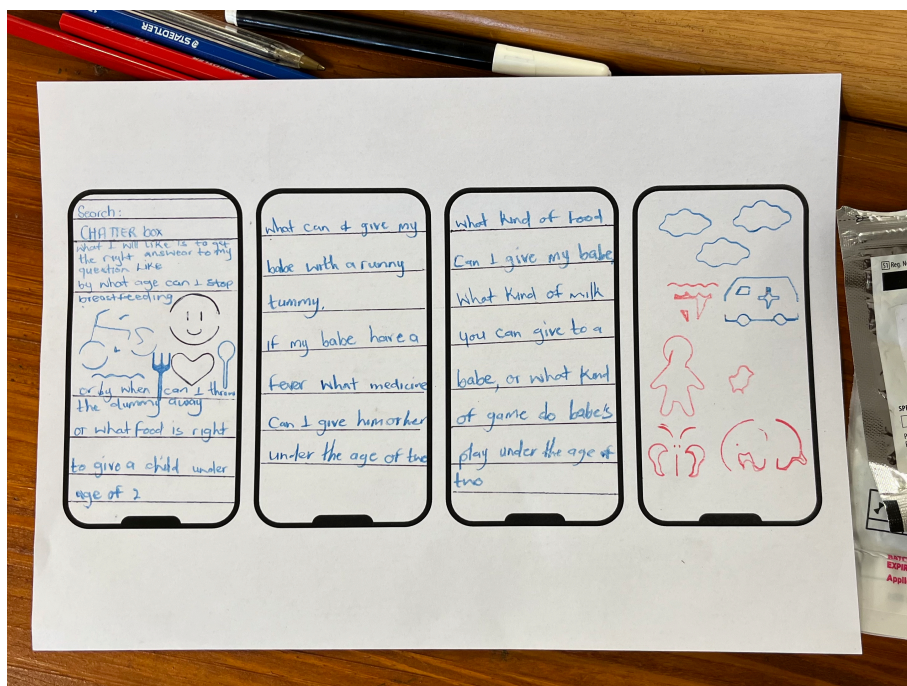 STAEDTLER
Search:
CHATTER box
what I will like is to get
the right answear to my
question like
by what age can I stop
breastfeeding
or by when can I throw
the dummy away
or what food is right
to give a child under
age of 2
what can I give my
babe with a runny
tummy,
if my babe have a
fever what medicine
Can I give him other
under the age of two
what kind of food
Can I give my babe,
what kind of milk
you can give to a
babe, or what kind
of game do babe's
play under the age of
two
Reg. N
EXPIR
Appli